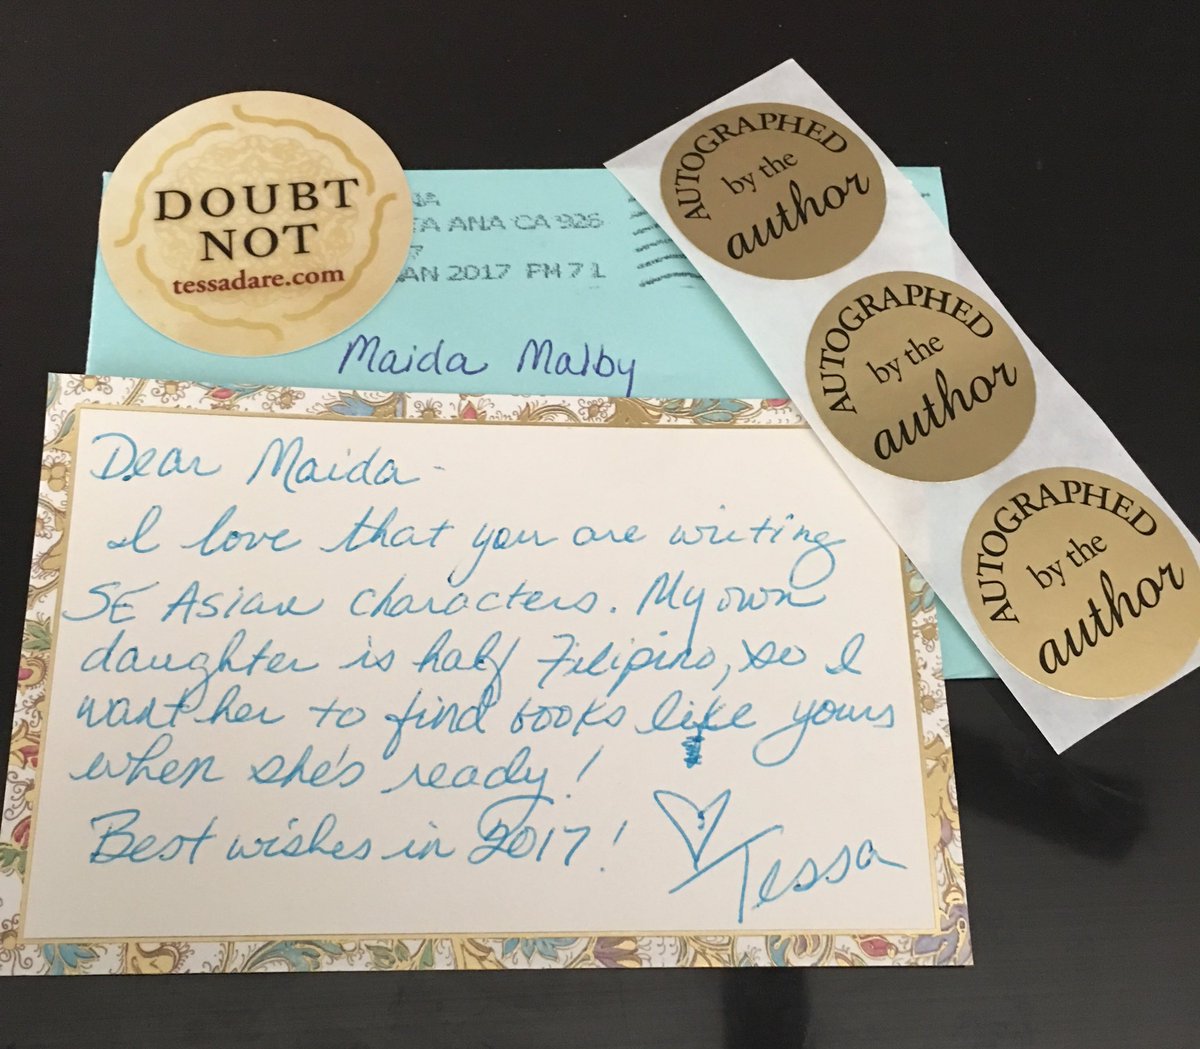 DOUBT
NOT
tessadare.com
ANA CA 926
2017 PM 7 L
Maida Malby
Dear Maida -
I love that you are writing
SE Asian characters. My own
daughter is half Filipino, so I
want her to find books like yours
when she's ready!
Best wishes in 2017!
Tessa
AUTOGRAPHED
by the
author
AUTOGRAPHED
by the
author
AUTOGRAPHED
by the
author